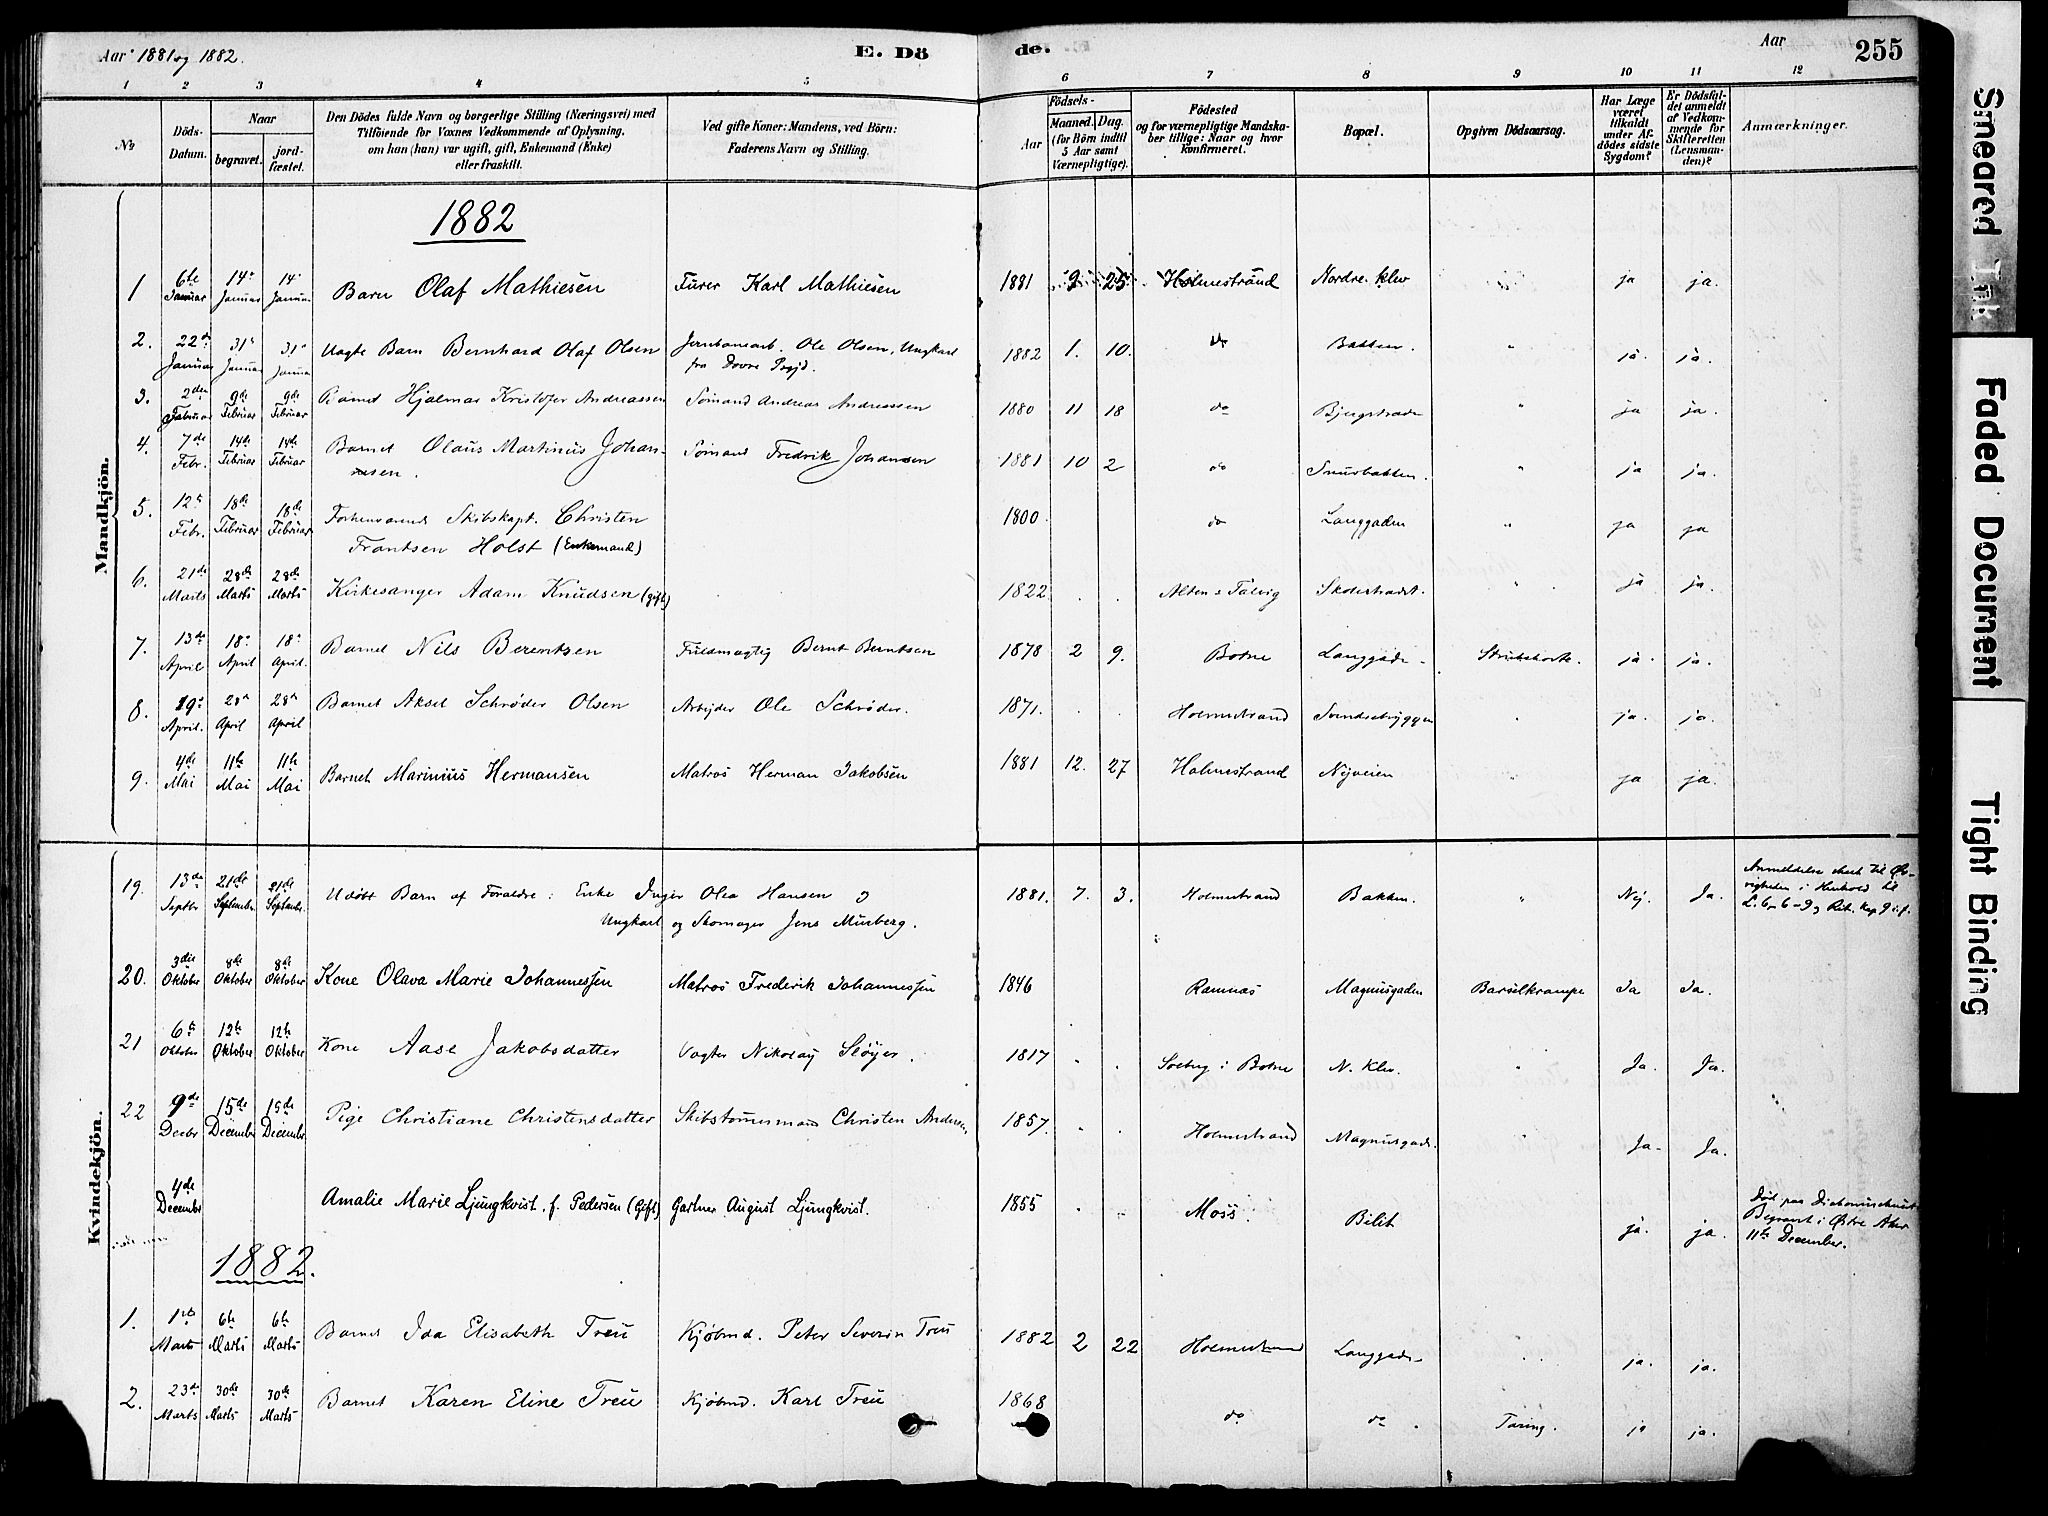 Aar 1881 og 1882.
E. Dö
de.
Aar
255
1 2 3 4 5 6 7 8 9 10 11 12
No
Döds-Datum.
Naar
begravet.
jord-fæstet.
Den Dödes fulde Navn og borgerlige Stilling (Næringsvei) med
Tilföiende for Voxnes Vedkommende af Oplysning,
om han (hun) var ugift, gift, Enkemand (Enke)
eller fraskilt.
Ved gifte Koner: Mandens, ved Börn:
Faderens Navn og Stilling.
Födsels-
Aar
Maaned. Dag.
(for Börn indtil
5 Aar samt
Værnepligtige).
Födested
og for værnepligtige Mandska-
ber tillige: Naar og hvor
konfirmeret.
Bopæl.
Opgiven Dödsaarsag.
Har Læge
været
tilkaldt
under Af-
dödes sidste
Sygdom?
Er Dödsfal-
det anmeldt
af Vedkom-
mende for
Skifteretten
(Lensman-
den)?
Anmærkninger.
Mandkjön.
1882
1 6te Januar 14 Januar 14 Januar Barn Olaf Mathiesen Furer Karl Mathiesen 1881 9 25 Holmestrand Nordre Klev ja ja.
2. 22de Januar 31 Januar 31 Januar Uægte Barn Bernhard Olaf Olsen Jernbanearb. Ole Olsen, Ungkarl 1882 1. 10. do Bakken. " ja. ja.
fra Dovre Prgjd.
3. 2den Februar 9de Februar 9de Februar Barnet Hjalmar Kristofer Andreassen Sömand Andreas Andreassen 1880 11 18 do " ja ja.
4. 7de Febr. 14de Februar 14de Februar Barnet Olaus Martinus Johan- Sömand Fredrik Johansen 1881 10 2 do Snurbakken. " ja ja.
nesen.
5. 12 Febr. 18de Februar 18de Februar Forhenværende Skibskapt. Christen 1800. do Langgaden " ja ja
Frantsen Holst (Enkemand)
6. 21de Marts 28de Marts 28de Marts Kirkesanger Adam Knudsen (gift) 1822 Alten Talvig " ja ja.
7. 13de April 18 April 18 April. Barnet Nils Berentsen Fuldmægtig Bernt Berntsen 1878 2 9. Botne Langgade Strubehoste. ja. ja.
8. 19 April. 28 April 28 April Barnet Aksel Schrøder Olsen Arbejder Ole Schrøder. 1871. Holmestrand Svendsebryggen " ja. ja.
9. 4de Mai 11te Mai 11te Mai Barnet Marinius Hermansen Matros Herman Jakobsen 1881 12. 27 Holmestrand Nyveien " ja ja.
Kvindekjön.
19. 13de Septbr 21de September 21de September Udöbt Barn af Foraldre: Enke Inger Olea Hansen 1881. 7. 3. Holmestrand Bakken. " Nej. Ja. Anmeldelse skeet til Øv-
righeden i Henhold til
Ungkarl og Skomager Jens Murberg.
20. 3die Oktober 8de Oktober 8de Oktober Kone Olava Marie Johannessen Matros Frederik Johannessen 1846 Ramnæs Magnusgaden Barselkrampe Ja Ja.
21 6te Oktober 12te Oktober 12te Oktober Kone Aase Jakobsdatter Vagter Nikolaij Slöijer. 1817 i Botne N. Klev. " Ja. Ja.
22 9de Decbr 15de December 15de December Pige Christiane Christensdatter Skibstömmermand Christen Andersen 1857. Holmestrand Magnusgade. " Ja. Ja.
4de December Amalie Marie Ljungkvist, f. Pedersen (Gift) Gartner August Ljungkvist. 1855 Moss. Bilit ja. ja. Död paa
Begravet i Østre Aker
11te December.
1882.
1. 1ste Marts 6te Marts 6te Marts Barnet Ida Elisabeth Treu Kjöbmd. Peter Severin Treu 1882 2 22 Holmestrand Langgade ja. ja.
2. 23de Marts 30de Marts 30de Marts Barnet Karen Eline Treu Kjöbmd. Karl Treu 1868 do do. Tæring. ja ja.
Smeared Ink
Faded Document
Tight Binding